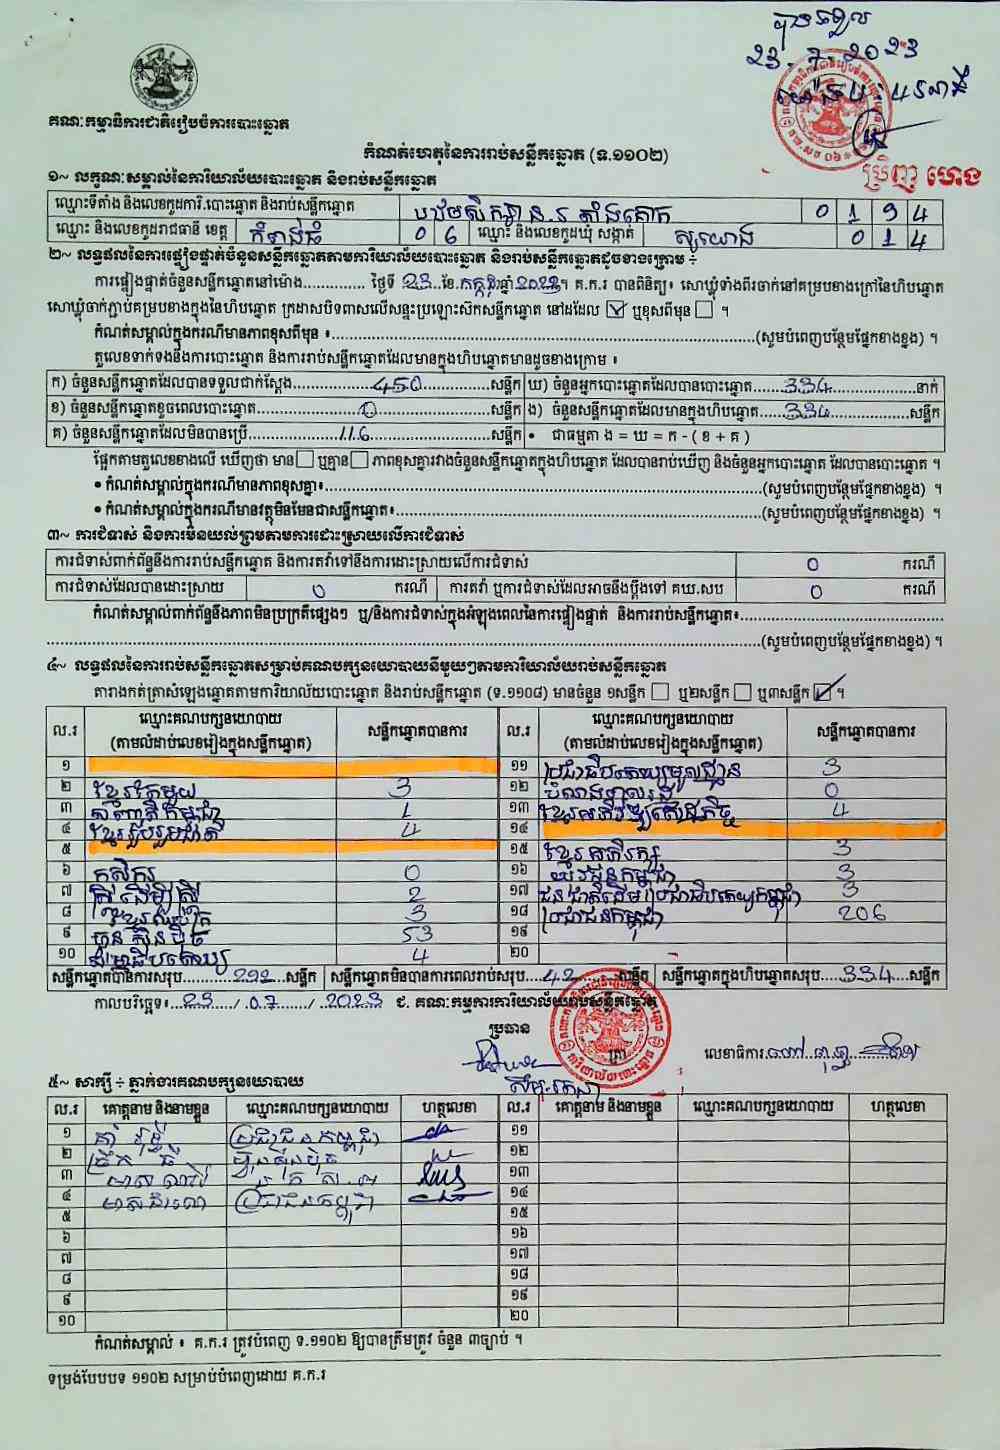 23.7.2023
គណៈកម្មាធិការជាតិរៀបចំការបោះឆ្នោត
កំណត់ហេតុនៃការរាប់សន្លឹកឆ្នោត (ទ.១១០២)
ប្រិញ ហេង
១~ លក្ខណៈសម្គាល់នៃការិយាល័យបោះឆ្នោត និងរាប់សន្លឹកឆ្នោត
ឈ្មោះទីតាំង និងលេខកូដការិ.បោះឆ្នោត និងរាប់សន្លឹកឆ្នោត 0 1 9 4
ឈ្មោះ និងលេខកូដរាជធានី ខេត្ត កំពង់ធំ 0 6 ឈ្មោះ និងលេខកូដឃុំ សង្កាត់ ស្រយោង 0 1 4
២~ លទ្ធផលនៃការផ្ទៀងផ្ទាត់ចំនួនសន្លឹកឆ្នោតតាមការិយាល័យបោះឆ្នោត និងរាប់សន្លឹកឆ្នោតដូចខាងក្រោម ÷
ការផ្ទៀងផ្ទាត់ចំនួនសន្លឹកឆ្នោតនៅម៉ោង.............. ថ្ងៃទី 23 ខែ កក្កដា ឆ្នាំ 2023។ គ.ក.រ បានពិនិត្យ៖ សោឃ្លុំទាំងពីរចាក់នៅគម្របខាងក្រៅនៃហិបឆ្នោត
សោឃ្លុំចាក់ភ្ជាប់គម្របខាងក្នុងនៃហិបឆ្នោត ក្រដាសបិទពាសលើសន្ទះប្រឡោះស៊កសន្លឹកឆ្នោត នៅដដែល ☑ ឬខុសពីមុន ☐ ។
កំណត់សម្គាល់ក្នុងករណីមានភាពខុសពីមុន ៖..............(សូមបំពេញបន្ថែមផ្នែកខាងខ្នង) ។
តួលេខទាក់ទងនឹងការបោះឆ្នោត និងការរាប់សន្លឹកឆ្នោតដែលមានក្នុងហិបឆ្នោតមានដូចខាងក្រោម ៖
ក) ចំនួនសន្លឹកឆ្នោតដែលបានទទួលជាក់ស្តែង..............450..............សន្លឹក ឃ) ចំនួនអ្នកបោះឆ្នោតដែលបានបោះឆ្នោត.......334..............នាក់
ខ) ចំនួនសន្លឹកឆ្នោតខូចពេលបោះឆ្នោត..............0..............សន្លឹក ង) ចំនួនសន្លឹកឆ្នោតដែលមានក្នុងហិបឆ្នោត.....334..............សន្លឹក
គ) ចំនួនសន្លឹកឆ្នោតដែលមិនបានប្រើ..............116..............សន្លឹក • ជាធម្មតា ង = ឃ = ក - ( ខ + គ )
ផ្អែកតាមតួលេខខាងលើ ឃើញថា មាន ☐ ឬគ្មាន ☐ ភាពខុសគ្នារវាងចំនួនសន្លឹកឆ្នោតក្នុងហិបឆ្នោត ដែលបានរាប់ឃើញ និងចំនួនអ្នកបោះឆ្នោត ដែលបានបោះឆ្នោត ។
• កំណត់សម្គាល់ក្នុងករណីមានភាពខុសគ្នា៖..............(សូមបំពេញបន្ថែមផ្នែកខាងខ្នង) ។
• កំណត់សម្គាល់ក្នុងករណីមានវត្ថុមិនមែនជាសន្លឹកឆ្នោត៖..............(សូមបំពេញបន្ថែមផ្នែកខាងខ្នង) ។
៣~ ការជំទាស់ និងការមិនយល់ព្រមតាមការដោះស្រាយលើការជំទាស់
ការជំទាស់ពាក់ព័ន្ធនឹងការរាប់សន្លឹកឆ្នោត និងការតវ៉ាទៅនឹងការដោះស្រាយលើការជំទាស់ 0 ករណី
ការជំទាស់ដែលបានដោះស្រាយ 0 ករណី ការតវ៉ា ឬការជំទាស់ដែលអាចនឹងប្តឹងទៅ គឃ.សប 0 ករណី
កំណត់សម្គាល់ពាក់ព័ន្ធនឹងភាពមិនប្រក្រតីផ្សេងៗ ឬ/និងការជំទាស់ក្នុងអំឡុងពេលនៃការផ្ទៀងផ្ទាត់ និងការរាប់សន្លឹកឆ្នោត៖..............
..............(សូមបំពេញបន្ថែមផ្នែកខាងខ្នង) ។
៤~ លទ្ធផលនៃការរាប់សន្លឹកឆ្នោតសម្រាប់គណបក្សនយោបាយនីមួយៗតាមការិយាល័យរាប់សន្លឹកឆ្នោត
តារាងកត់ត្រាសំឡេងឆ្នោតតាមការិយាល័យបោះឆ្នោត និងរាប់សន្លឹកឆ្នោត (ទ.១១០៨) មានចំនួន ១សន្លឹក ☐ ឬ២សន្លឹក ☐ ឬ៣សន្លឹក ☑ ។
ល.រ ឈ្មោះគណបក្សនយោបាយ (តាមលំដាប់លេខរៀងក្នុងសន្លឹកឆ្នោត) សន្លឹកឆ្នោតបានការ ល.រ ឈ្មោះគណបក្សនយោបាយ (តាមលំដាប់លេខរៀងក្នុងសន្លឹកឆ្នោត) សន្លឹកឆ្នោតបានការ
១ ១១ ប្រជាធិបតេយ្យមូលដ្ឋាន 3
២ ខ្មែរតែមួយ 3 ១២ បំណងពលរដ្ឋ 0
៣ សញ្ជាតិកម្ពុជា 1 ១៣ ខ្មែរអភិវឌ្ឍសេដ្ឋកិច្ច 4
៤ ខ្មែររួបរួមជាតិ 4 ១៤
៥ ១៥ ខ្មែរអភិរក្ស 3
៦ កសិករ 0 ១៦ យុវជនកម្ពុជា 3
៧ ស្រីដើម្បីស្រី 2 ១៧ ជនជាតិដើមប្រជាធិបតេយ្យកម្ពុជា 3
៨ 3 ១៨ ប្រជាជនកម្ពុជា 206
៩ ហ៊្វុនស៊ិនប៉ិច 53 ១៩
១០ 4 ២០
សន្លឹកឆ្នោតបានការសរុប......292....សន្លឹក សន្លឹកឆ្នោតមិនបានការពេលរាប់សរុប...42......សន្លឹក សន្លឹកឆ្នោតក្នុងហិបឆ្នោតសរុប....334....សន្លឹក
កាលបរិច្ឆេទ៖...23.../.07.../.2023 ជ. គណៈកម្មការការិយាល័យរាប់សន្លឹកឆ្នោត
ប្រធាន
លេខាធិការ
៥~ សាក្សី ÷ ភ្នាក់ងារគណបក្សនយោបាយ
ល.រ គោត្តនាម និងនាមខ្លួន ឈ្មោះគណបក្សនយោបាយ ហត្ថលេខា ល.រ គោត្តនាម និងនាមខ្លួន ឈ្មោះគណបក្សនយោបាយ ហត្ថលេខា
១ ប្រជាជនកម្ពុជា ១១
២ ហ៊្វុនស៊ិនប៉ិច ១២
៣ ១៣
៤ ប្រជាជនកម្ពុជា ១៤
៥ ១៥
៦ ១៦
៧ ១៧
៨ ១៨
៩ ១៩
១០ ២០
កំណត់សម្គាល់ ៖ គ.ក.រ ត្រូវបំពេញ ទ.១១០២ ឱ្យបានត្រឹមត្រូវ ចំនួន ៣ច្បាប់ ។
ទម្រង់បែបបទ ១១០២ សម្រាប់បំពេញដោយ គ.ក.រ